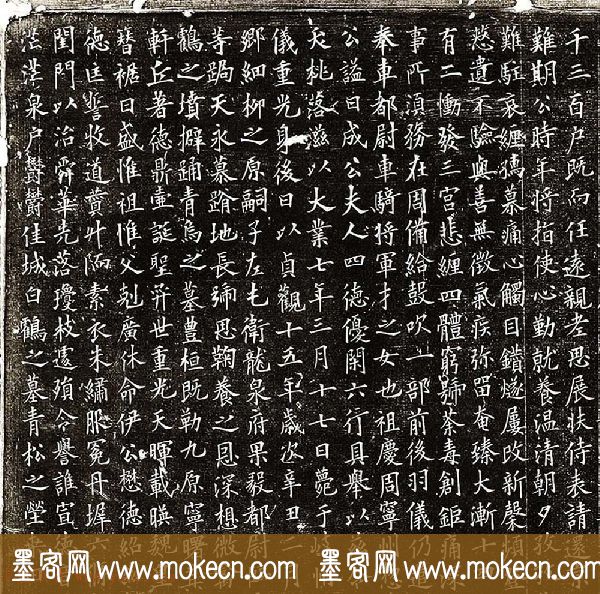 千三百户既而任遠親老思展扶侍表請還
難期公時年將指使心勤就養温清朝夕孜
難駐哀纏孺慕痛心觸目鑽燧屢改新
慭遺不驗與善無徵氣疾弥留奄臻大漸十
有二慟發三宫悲纏四體窮號荼毒創鉅痛深
事所湏務在周備給鼓吹一部前後羽儀仍
奉車都尉車騎將軍才之女也祖慶周寧州
公謚曰成公夫人四德優閑六行具舉以
夭桃落滋以大業七年三月十七日薨于
儀重光身後日以貞觀十五年歲次辛丑二月
鄉細柳之原嗣子左屯衛龍泉府果毅都尉
等跼天永慕蹐地長號思鞠養之恩深想微
鶴之墳擗踊青烏之墓豊桓既勒九原寧
軒丘著德鼎壷誕聖弈世重光天暉載暎魏
簪裾日盛惟祖惟父剋廣休命伊公懋德紹
德匡誓牧道賁升隔素衣朱繡服冕丹墀六
閨門以治舜華先落攓枝遠殞令譽誰宣德
茫茫泉户欝欝佳城白鶴之墓青松之塋
墨客网 www.mokecn.com 墨客网 www.mokecn.com